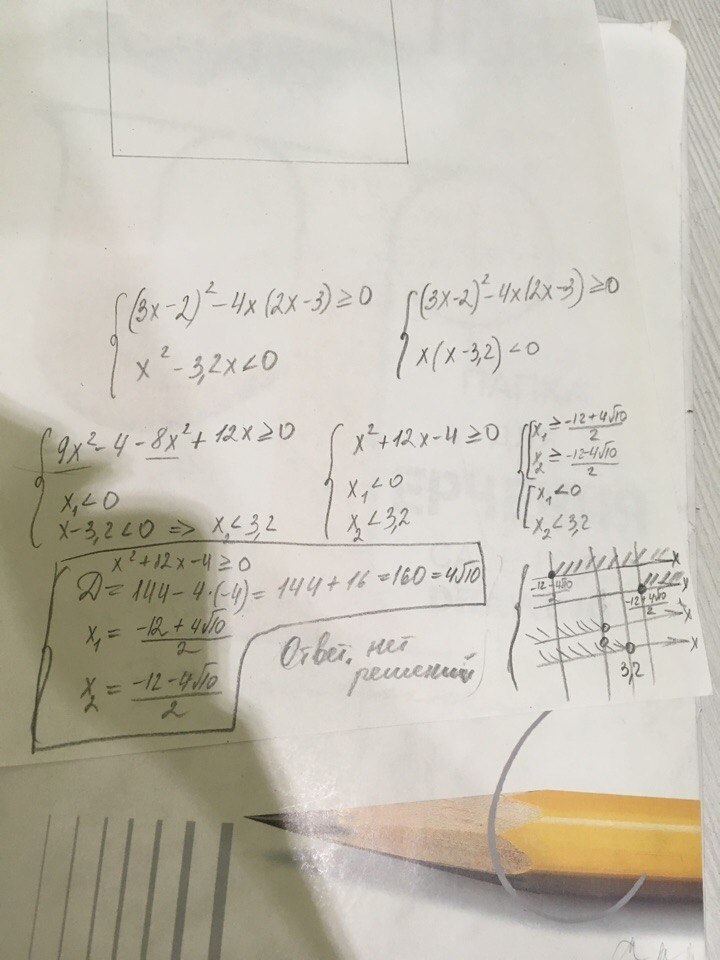 (3x-2)² - 4x(2x-3) ≥ 0
x² - 3,2x < 0
(3x-2)² - 4x(2x-3) ≥ 0
x(x-3,2) < 0
9x² - 4 - 8x² + 12x ≥ 0
x₁ < 0
x - 3,2 < 0 => x₂ < 3,2
x² + 12x - 4 ≥ 0
x₁ < 0
x₂ < 3,2
x₁ ≥ (-12+4√10)/2
x₂ ≥ (-12-4√10)/2
x₁ < 0
x₂ < 3,2
x² + 12x - 4 ≥ 0
D = 144 - 4·(-4) = 144 + 16 = 160 = 4√10
x₁ = (-12 + 4√10)/2
x₂ = (-12 - 4√10)/2
Ответ. нет
решений
x
(-12-4√10)/2
x
(-12+4√10)/2
x
x
3,2